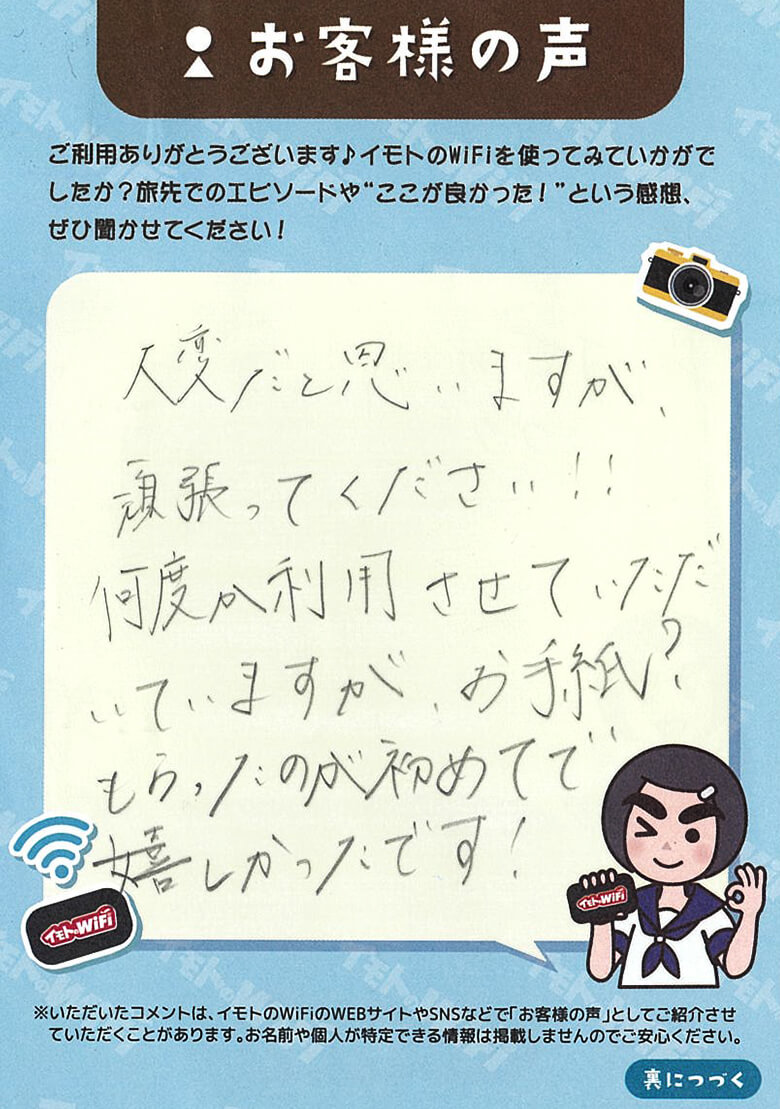 お客様の声
ご利用ありがとうございます♪イモトのWiFiを使ってみていかがで
したか?旅先でのエピソードや“ここが良かった!”という感想、
ぜひ聞かせてください!
大変だと思いますが、
頑張ってください!!
何度か利用させていただ
いていますが、お手紙?
もらったのが初めてで
嬉しかったです!
イモトのWiFi
イモトのWiFi
※いただいたコメントは、イモトのWiFiのWEBサイトやSNSなどで「お客様の声」としてご紹介させ
ていただくことがあります。お名前や個人が特定できる情報は掲載しませんのでご安心ください。
裏につづく